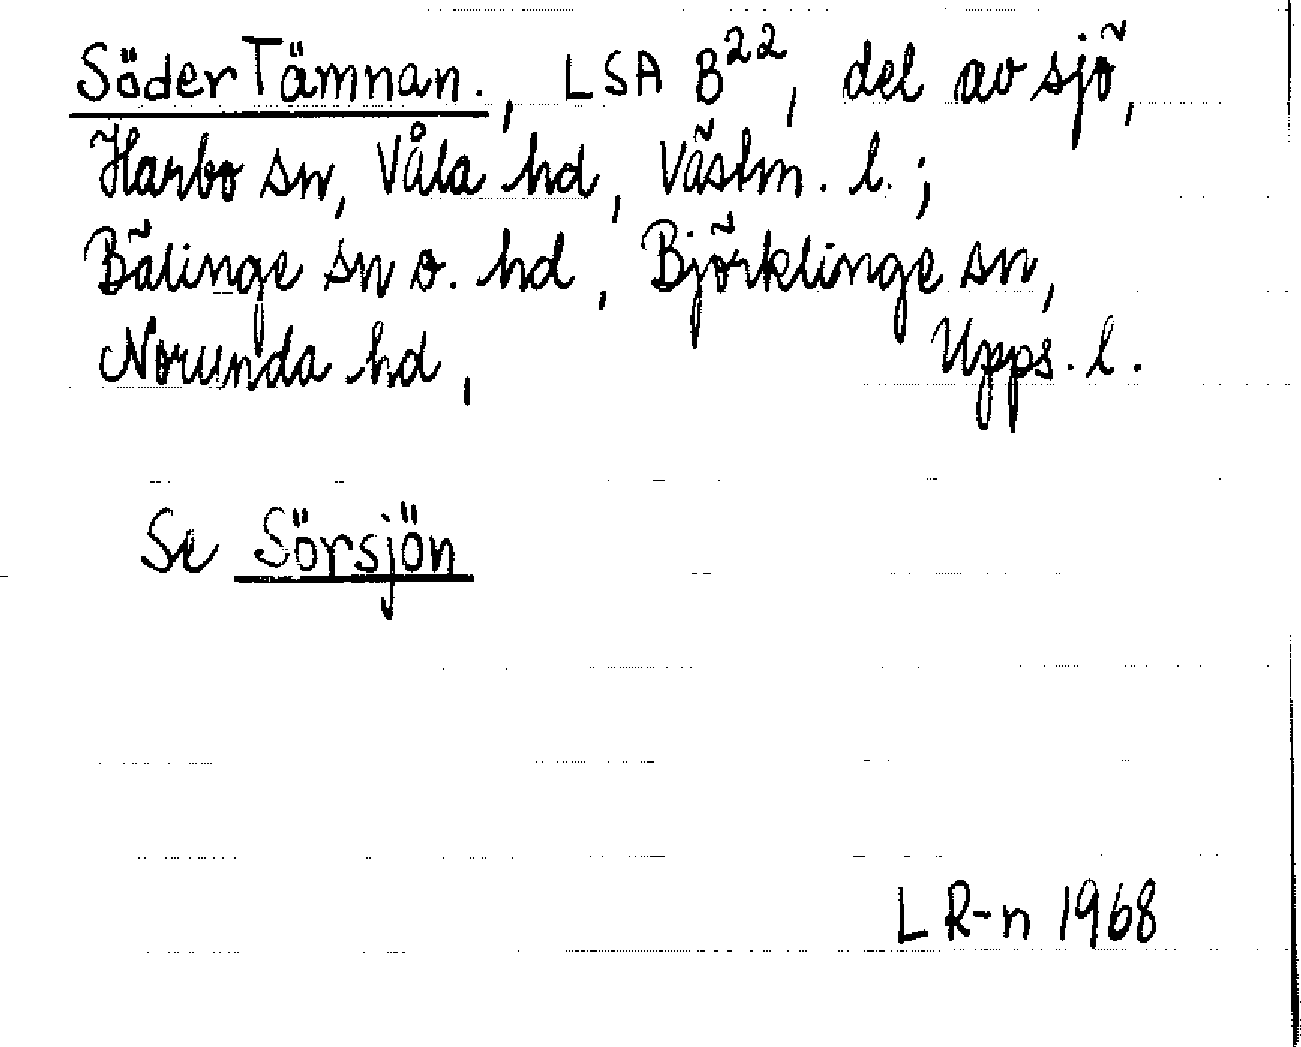 Söder Tämnan., LSA B²², del av sjö,
Harbo sn, Våla hd, Västm. l.;
Bälinge sn o. hd, Björklinge sn,
Norunda hd, Upps. l.
Se Sörsjön
L R-n 1968